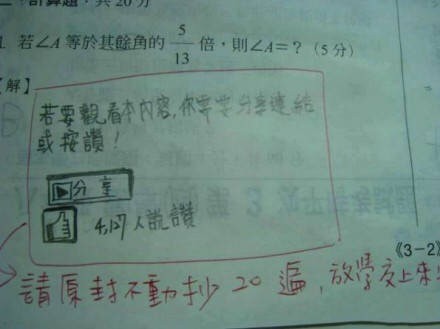 計算題：共20分
1. 若∠A等於其餘角的 5/13 倍，則∠A=？（5分）
【解】
若要觀看本內容,你需要分享連結
或按讚！
分享
4,127人說讚
《3-2》
請原封不動抄20遍,放學交上來